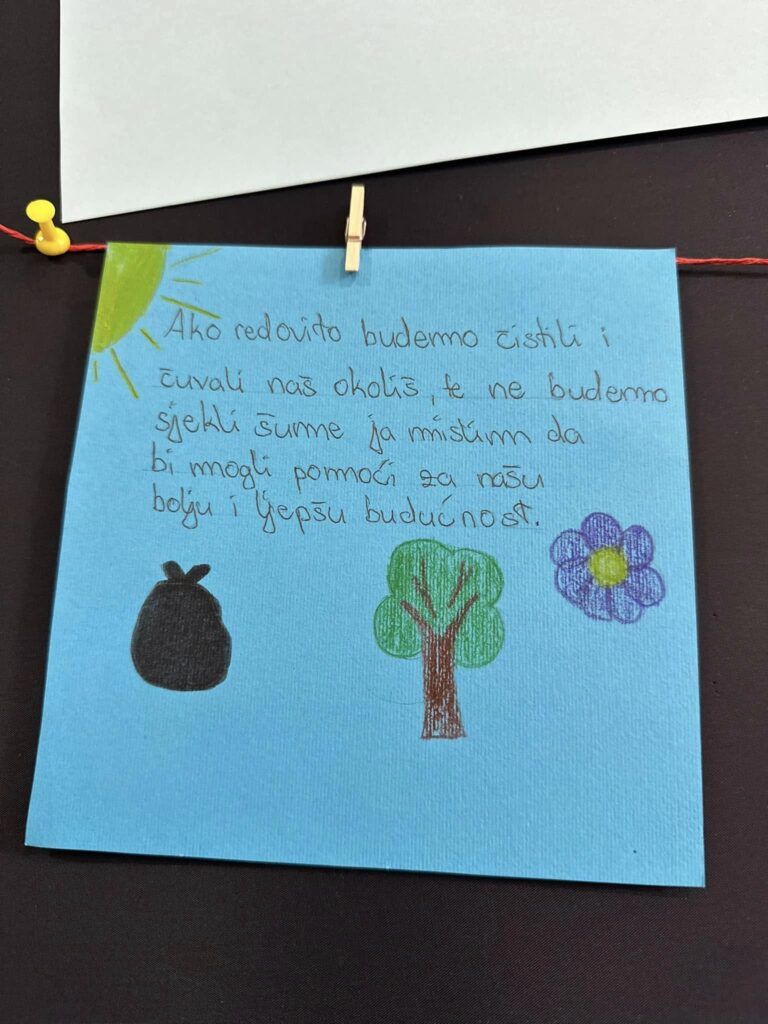 Ako redovito budemo čistili i
čuvali naš okoliš, te ne budemo
sjekli šume ja mislim da
bi mogli pomoći za našu
bolju i ljepšu budućnost.